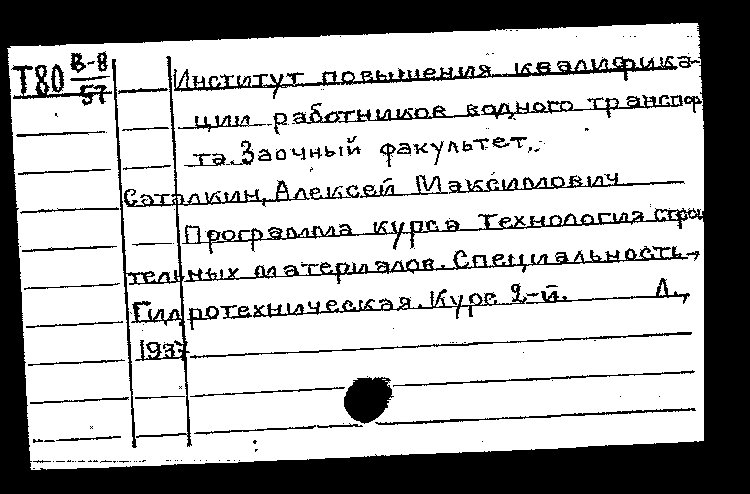 Т80 В-8/57
Институт повышения квалифика-
ции работников водного транспор
та. Заочный факультет.
Саталкин, Алексей Максимович
Программа курса Технология строи
тельных материалов. Специальность-
Гидротехническая. Курс 2-й. Л.,
1937